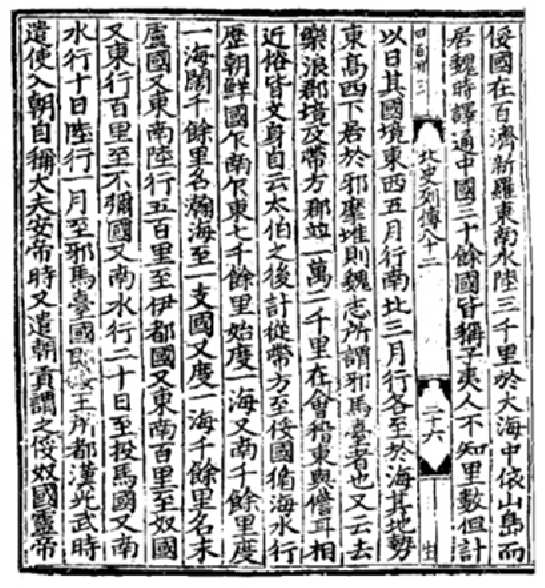 俀國在百濟新羅東南水陸三千里於大海中依山島而
居魏時譯通中國三十餘國皆稱子夷人不知里數但計
北史列傳八十二
二十六
生
以日其國境東西五月行南北三月行各至於海其地勢
東高西下居於邪摩堆則魏志所謂邪馬臺者也又云去
樂浪郡境及帶方郡竝一萬二千里在會稽東與儋耳相
近俗皆文身自云太伯之後計從帶方至俀國循海水行
歷朝鮮國乍南乍東七千餘里始度一海又南千餘里度
一海闊千餘里名瀚海至一支國又度一海千餘里名末
盧國又東南陸行五百里至伊都國又東南百里至奴國
又東行百里至不彌國又南水行二十日至投馬國又南
水行十日陸行一月至邪馬臺國即俀王所都漢光武時
遣使入朝自稱大夫安帝時又遣朝貢謂之俀奴國靈帝